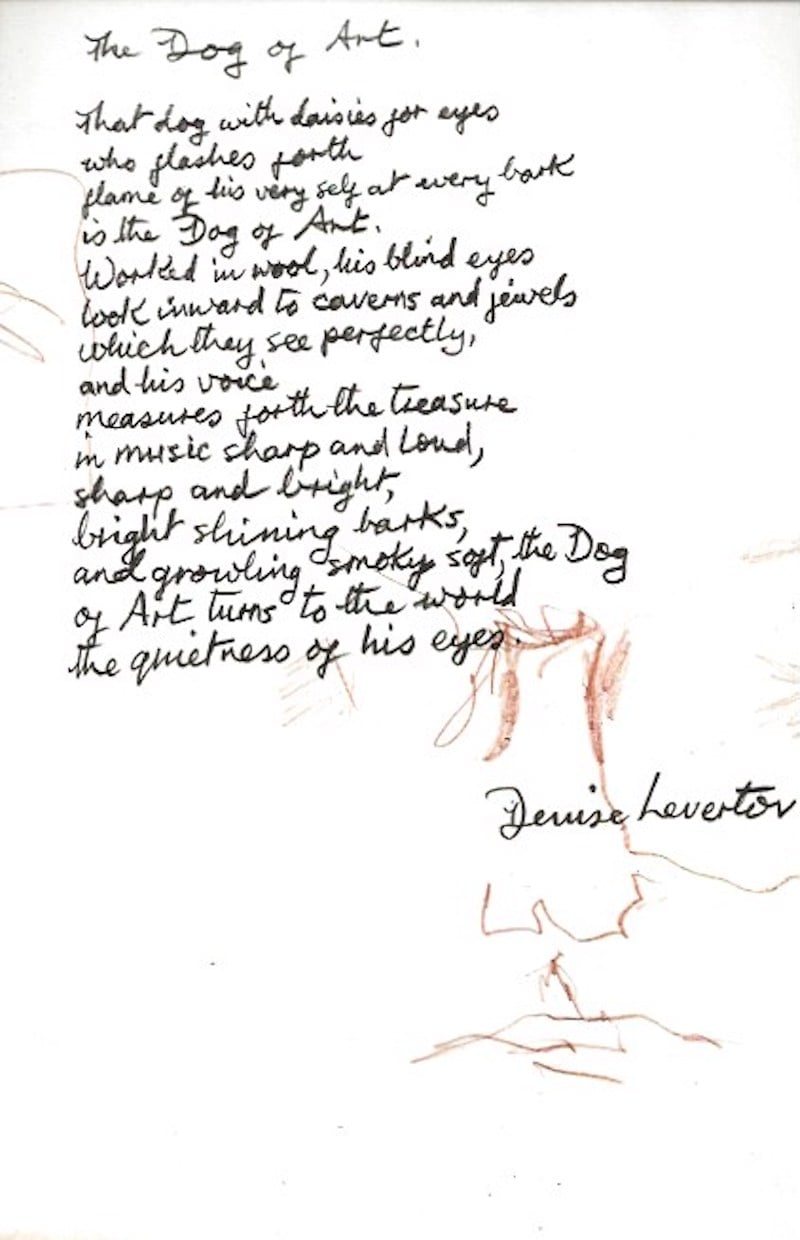 The Dog of Art.
That dog with daisies for eyes
who flashes forth
flame of his very self at every bark
is the Dog of Art.
Worked in wool, his blind eyes
look inward to caverns and jewels
which they see perfectly,
and his voice
measures forth the treasure
in music sharp and loud,
sharp and bright,
bright shining barks,
and growling smoky soft, the Dog
of Art turns to the world
the quietness of his eyes.
Denise Levertov